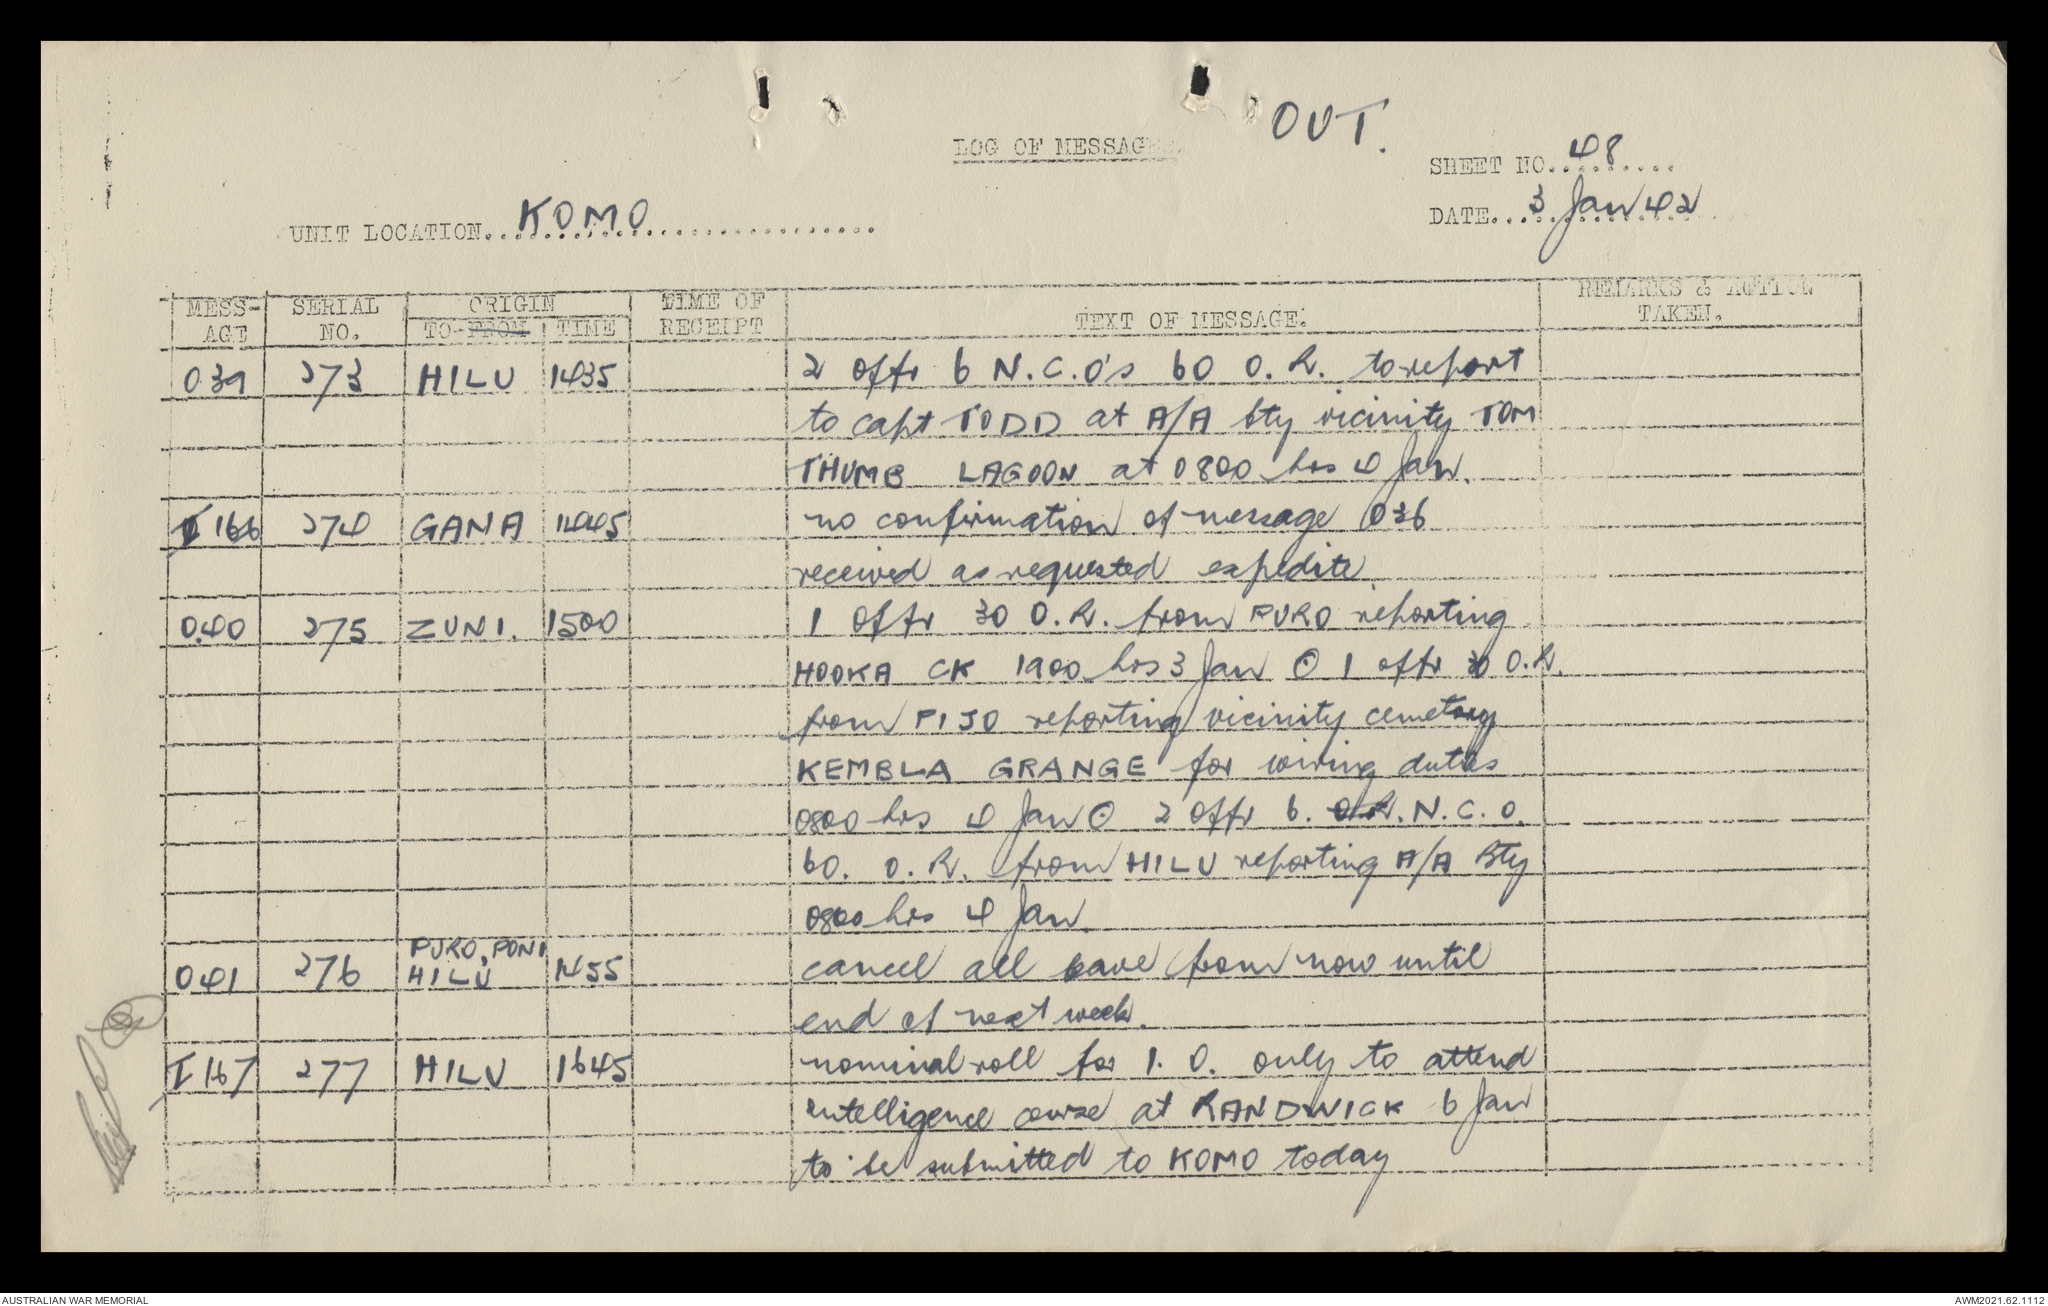 OUT.
LOG OF MESSAGES.
SHEET NO. 48
DATE. 3 Jan 42
UNIT LOCATION. KOMO
MESS-AGE SERIAL NO. ORIGIN TO FROM TIME TIME OF RECEIPT TEXT OF MESSAGE. REMARKS & ACTION TAKEN.
039 273 HILU 1435 2 offr 6 N.C.O's 60 O.R. to report
to capt TODD at A/A bty vicinity TOM
THUMB LAGOON at 0800 hrs 4 Jan.
I 166 274 GANA 1445 no confirmation of message 036
received as requested expedite
040 275 ZUNI. 1500 1 offr 30 O.R. from PURO reporting
HOOKA CK 1900 hrs 3 Jan ⊙ 1 offr 30 O.R.
from PIJO reporting vicinity cemetery
KEMBLA GRANGE for wiring duties
0800 hrs 4 Jan ⊙ 2 offr 6. O.R. N.C.O.
60. O.R. from HILU reporting A/A Bty
0800 hrs 4 Jan.
041 276 PURO, PONI HILU 1455 cancel all leave from now until
end of next week.
I 167 277 HILU 1645 nominal roll for I.O. only to attend
intelligence course at RANDWICK 6 Jan
to be submitted to KOMO today
AUSTRALIAN WAR MEMORIAL
AWM2021.62.1112